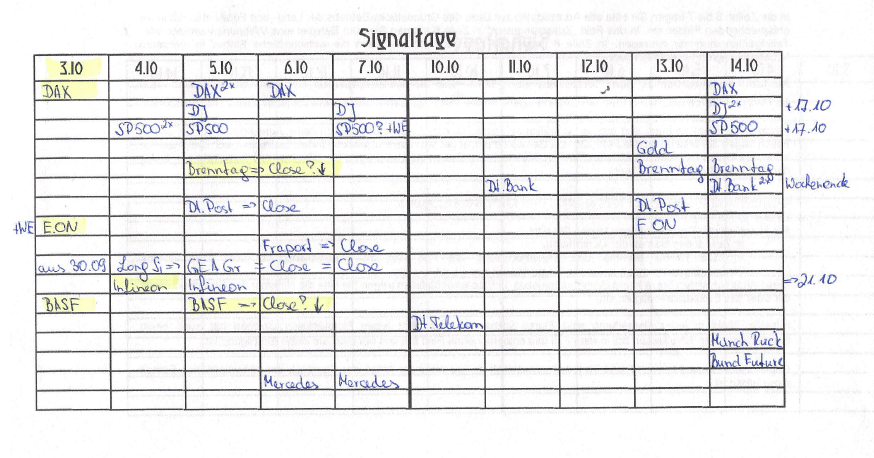 Signaltage
3.10 4.10 5.10 6.10 7.10 10.10 11.10 12.10 13.10 14.10
DAX DAX 2x DAX DAX
DJ DJ DJ 2x +17.10
SP500 2x SP500 SP500? +WE SP500 +17.10
Gold
Brenntag => Close? ↓ Brenntag Brenntag
Dt. Bank Dt. Bank 2x Wochenende
Dt. Post => Close Dt. Post
+WE E.ON E.ON
Fraport => Close
aus 30.09 Long Si => GEA Gr = Close = Close
Infineon Infineon =>21.10
BASF BASF => Close? ↓
Dt. Telekom
Münch Rück
Bund Future
Mercedes Mercedes